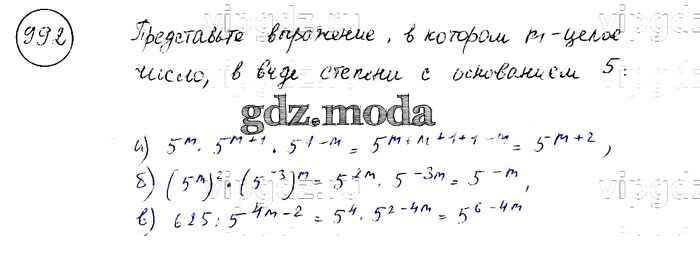 992
Представьте выражение, в котором m-целое
число, в виде степени с основанием 5:
gdz.moda
а) 5^m · 5^{m+1} · 5^{1-m} = 5^{m+m+1+1-m} = 5^{m+2},
б) (5^m)^2 · (5^{-3})^m = 5^{2m} · 5^{-3m} = 5^{-m},
в) 625 : 5^{4m-2} = 5^4 · 5^{2-4m} = 5^{6-4m}